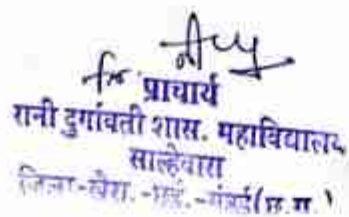 प्राचार्य
रानी दुर्गावती शास. महाविद्यालय
साल्हेवारा
जिला-खैरा.-